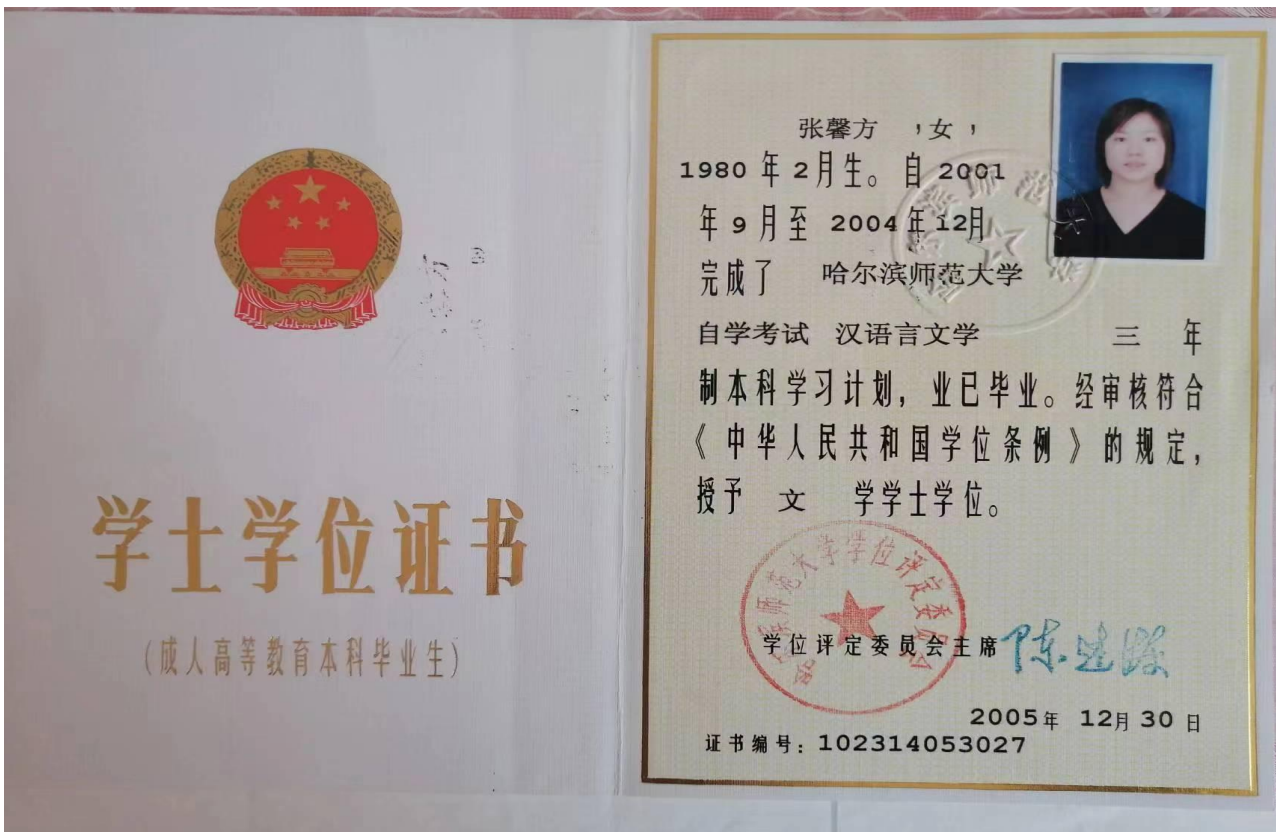 学士学位证书
(成人高等教育本科毕业生)
张馨方 ,女,
1980 年 2月生。自 2001
年 9 月至 2004 年 12月
完成了 哈尔滨师范大学
自学考试 汉语言文学 三 年
制本科学习计划, 业已毕业。经审核符合
《中华人民共和国学位条例》的规定,
授予 文 学学士学位。
哈尔滨师范大学学位评定委员会
学位评定委员会主席
2005年 12月 30 日
证书编号: 102314053027